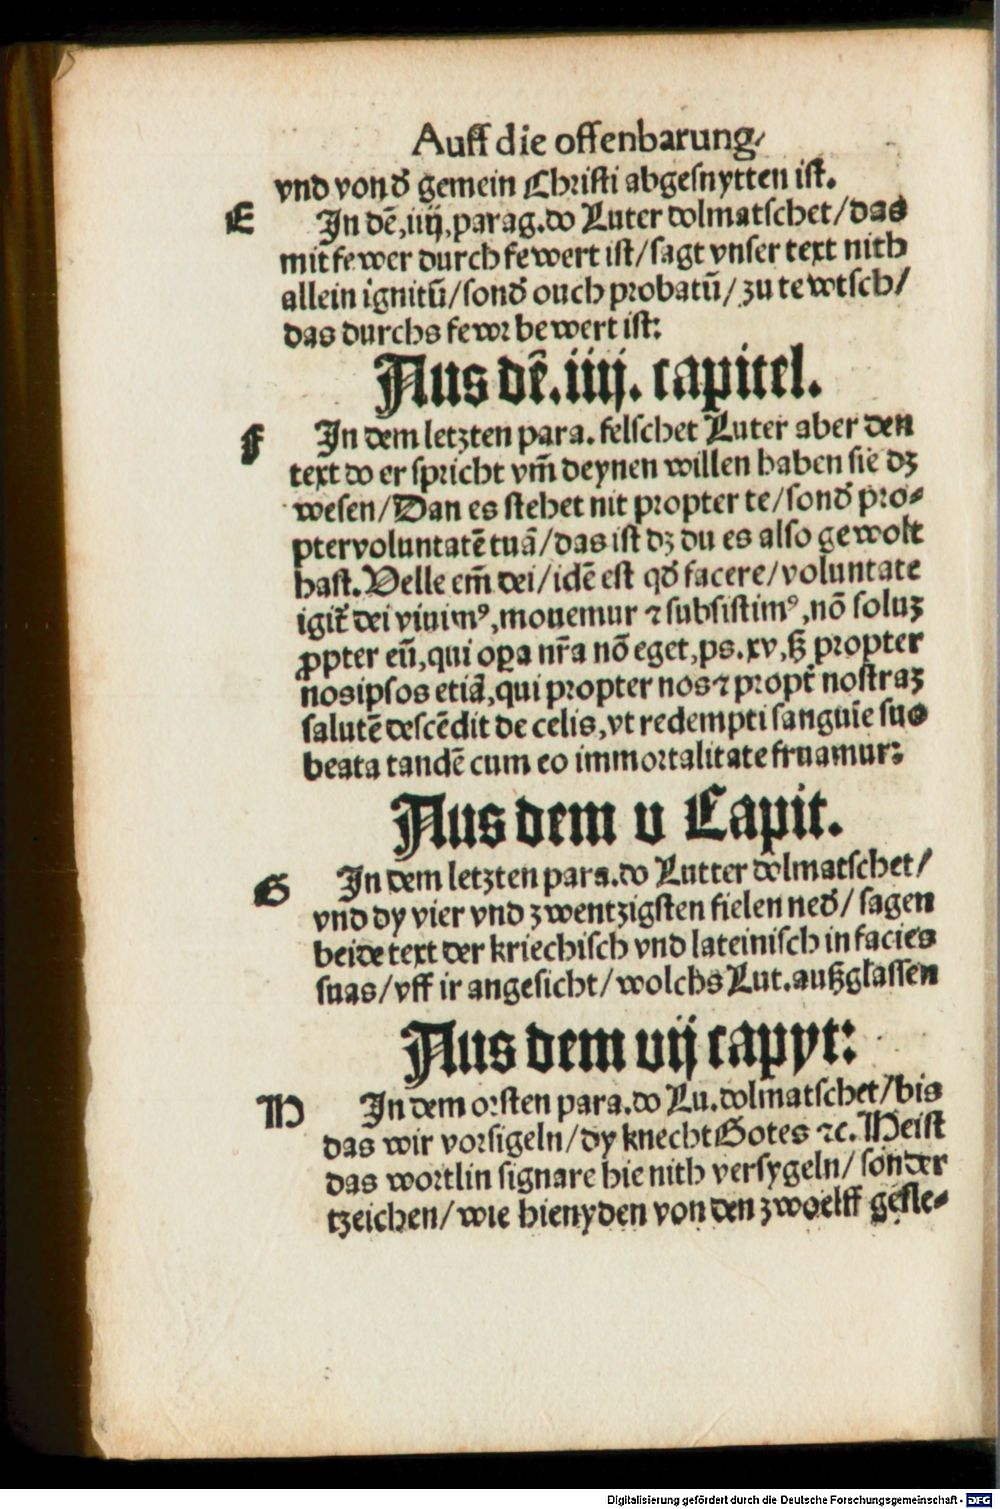 Auff die offenbarung/
vnd von d̕ gemein Christi abgesnytten ist.
E In dē,iiij,parag.do Luter dolmatschet/das
mit fewer durch fewert ist/sagt vnser text nith
allein ignitū/sond̕ ouch probatū/zu tewtsch/
das durchs fewr bewert ist:
Aus dē.iiij. capitel.
F In dem letzten para. felschet Luter aber den
text do er spricht vm̄ deynen willen haben sie dz
wesen/Dan es stehet nit propter te/sond̕ pro⸗
pter voluntatē tuā/das ist dz du es also gewolt
hast. Velle em̄ dei/idē est qd̕ facere/voluntate
igit̕ dei viuimꝰ,mouemur ⁊ subsistimꝰ,nō soluz
ꝓpter eū,qui oꝑa nr̄a nō eget,ps.xv,ꝫ propter
nosipsos etiā,qui propter nos ⁊ propt̕ nostraz
salutē descēdit de celis,vt redempti sanguīe suo
beata tandē cum eo immortalitate fruamur:
Aus dem v Capit.
G In dem letzten para.do Lutter dolmatschet/
vnd dy vier vnd zwentzigsten fielen ned̕/ sagen
beide text der kriechisch vnd lateinisch in facies
suas/vff ir angesicht/wolchs Lut.außglassen
Aus dem vij capyt:
H In dem orsten para.do Lu.dolmatschet/bis
das wir vorsigeln/dy knecht Gotes ⁊c. Heist
das wortlin signare hie nith versygeln/ sonder
tzeichen/wie hienyden von den zwoelff gesle⸗
Digitalisierung gefördert durch die Deutsche Forschungsgemeinschaft - DFG